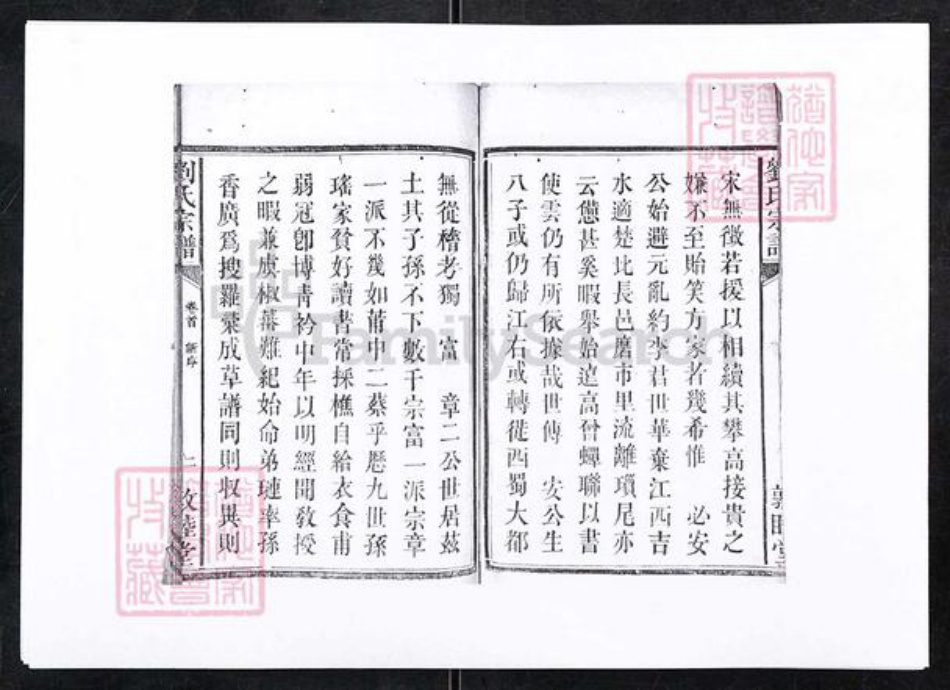 劉氏宗譜
敦睦堂
宋無徵若援以相續其攀高接貴之
嫌不至貽笑方家者幾希惟 必安
公始避元亂約李君世華棄江西吉
水適楚比長邑磨市里流離瑣尾亦
云憊甚奚暇舉始遠高曾蟬聯以書
使雲仍有所依據哉世傳 安公生
八子或仍歸江右或轉徙西蜀大都
無從稽考獨 富 章二公世居茲
土其子孫不下數千宗富一派宗章
一派不幾如莆中二蔡乎歷九世孫
瑤家貧好讀書常採樵自給衣食甫
弱冠卽博青衿中年以明經開敎授
之暇兼虞椒蕃難紀始命弟璉率孫
香廣爲搜羅彙成草譜同則收異則
劉氏宗譜
卷首
新序
二
敦睦堂
FamilySearch